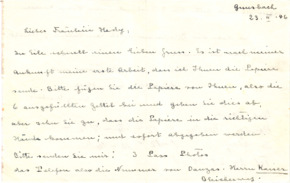 Gunsbach
23. II. 36
Liebes Fräulein Hedy,
In Eile schnell einen lieben Gruss. Es ist nach meiner
Ankunft meine erste Arbeit, dass ich Ihnen die Papiere
sende. Bitte fügen Sie alle Papiere von Ihnen, also die
6 ausgefüllten Zettel bei und geben Sie dies ab,
aber sehen Sie zu, dass die Papiere in die richtigen
Hände kommen, und sofort abgegeben werden.
Bitte senden Sie mir: 3 Pass Photos
das Telefon also die Nummer von Herrn Kaiser